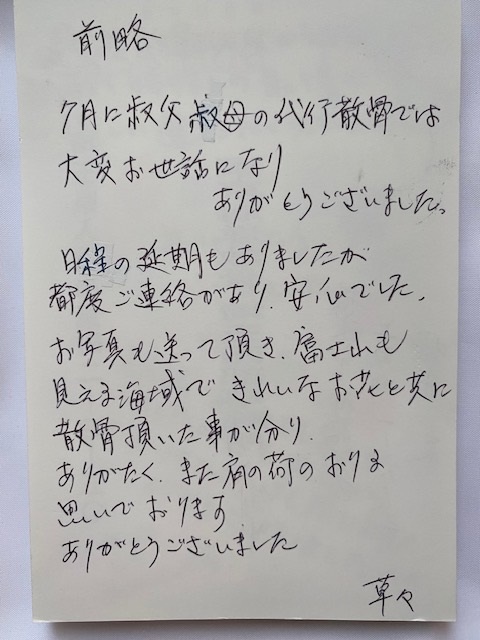 前略
7月に叔父叔母の代行散骨では
大変お世話になり
ありがとうございました。
日程の延期もありましたが
都度ご連絡があり、安心でした。
お写真も送って頂き、富士山も
見える海域できれいなお花と共に
散骨頂いた事が分り、
ありがたく、また肩の荷のおりる
思いでおります
ありがとうございました
草々